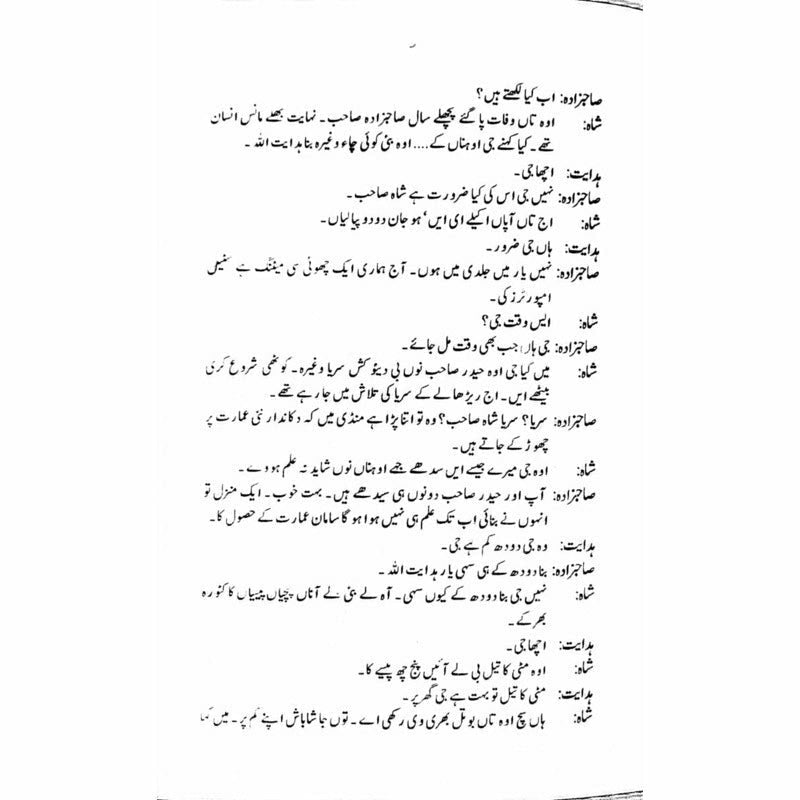 صاحبزادہ: اب کیا لکھتے ہیں؟
شاہ: اوہ تاں وفات پا گئے پچھلے سال صاحبزادہ صاحب۔ نہایت بھلے مانس انسان
تھے۔ کیا کہنے جی اوہناں کے.... اوہ بئی کوئی چاء وغیرہ بنا ہدایت اللہ۔
ہدایت: اچھا جی۔
صاحبزادہ: نہیں جی اس کی کیا ضرورت ہے شاہ صاحب۔
شاہ: اج تاں آپاں اکیلے ای ایں، ہو جان دو دو پیالیاں۔
ہدایت: ہاں جی ضرور۔
صاحبزادہ: نہیں یار میں جلدی میں ہوں۔ آج ہماری ایک چھوٹی سی میٹنگ ہے سٹیل
امپورٹرز کی۔
شاہ: ایس وقت جی؟
صاحبزادہ: جی ہاں جب بھی وقت مل جائے۔
شاہ: میں کیا جی اوہ حیدر صاحب نوں بی دینو کش سریا وغیرہ۔ کوٹھی شروع کری
بیٹھے ایں۔ اج ریڑھا لے کے سریا کی تلاش میں جا رہے تھے۔
صاحبزادہ: سریا؟ سریا شاہ صاحب؟ وہ تو اتنا پڑا ہے منڈی میں کہ دکاندار نئی عمارت پر
چھوڑ کے جاتے ہیں۔
شاہ: اوہ جی میرے جیسے ایں سدھے جمے اوہناں نوں شاید نہ علم ہووے۔
صاحبزادہ: آپ اور حیدر صاحب دونوں ہی سیدھے ہیں۔ بہت خوب۔ ایک منزل تو
انہوں نے بنائی اب تک علم ہی نہیں ہوا ہو گا سامان عمارت کے حصول کا۔
ہدایت: وہ جی دودھ کم ہے جی۔
صاحبزادہ: بنا دودھ کے ہی سہی یار ہدایت اللہ۔
شاہ: نہیں جی بنا دودھ کے کیوں سہی۔ آہ لے بئی لے آناں پچیاں پیسیاں کا کٹورہ
بھر کے۔
ہدایت: اچھا جی۔
شاہ: اوہ مٹی کا تیل بی لے آئیں پنج چھ پیسے کا۔
ہدایت: مٹی کا تیل تو بہت ہے جی گھر پر۔
شاہ: ہاں سچ اوہ تاں بوتل بھری وی رکھی اے۔ توں جا شاباش اپنے کم پر۔ میں